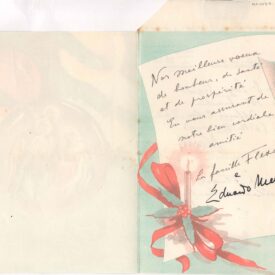 Nos meilleurs voeux
de bonheur, de santé
et de prospérité
En vous assurant de
notre bien cordiale
amitié
La famille
Eduardo